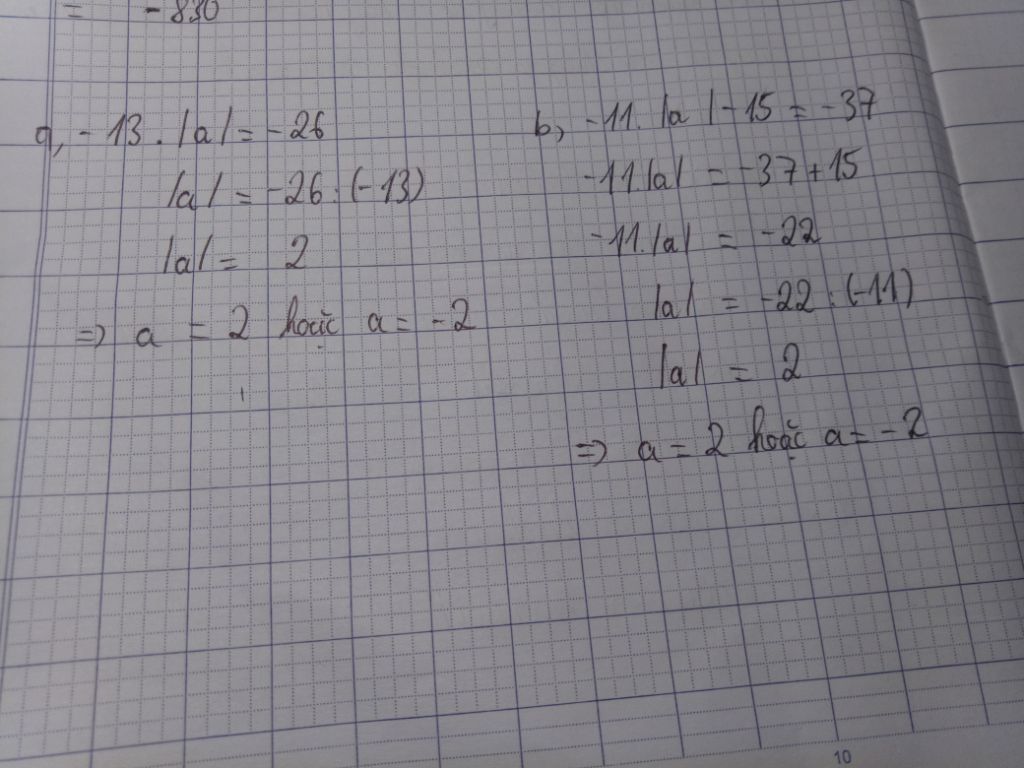 = -830
a, -13 . |a| = -26
|a| = -26 : (-13)
|a| = 2
=> a = 2 hoặc a = -2
b, -11. |a| - 15 = -37
-11.|a| = -37 + 15
-11.|a| = -22
|a| = -22 : (-11)
|a| = 2
=> a = 2 hoặc a = -2
10